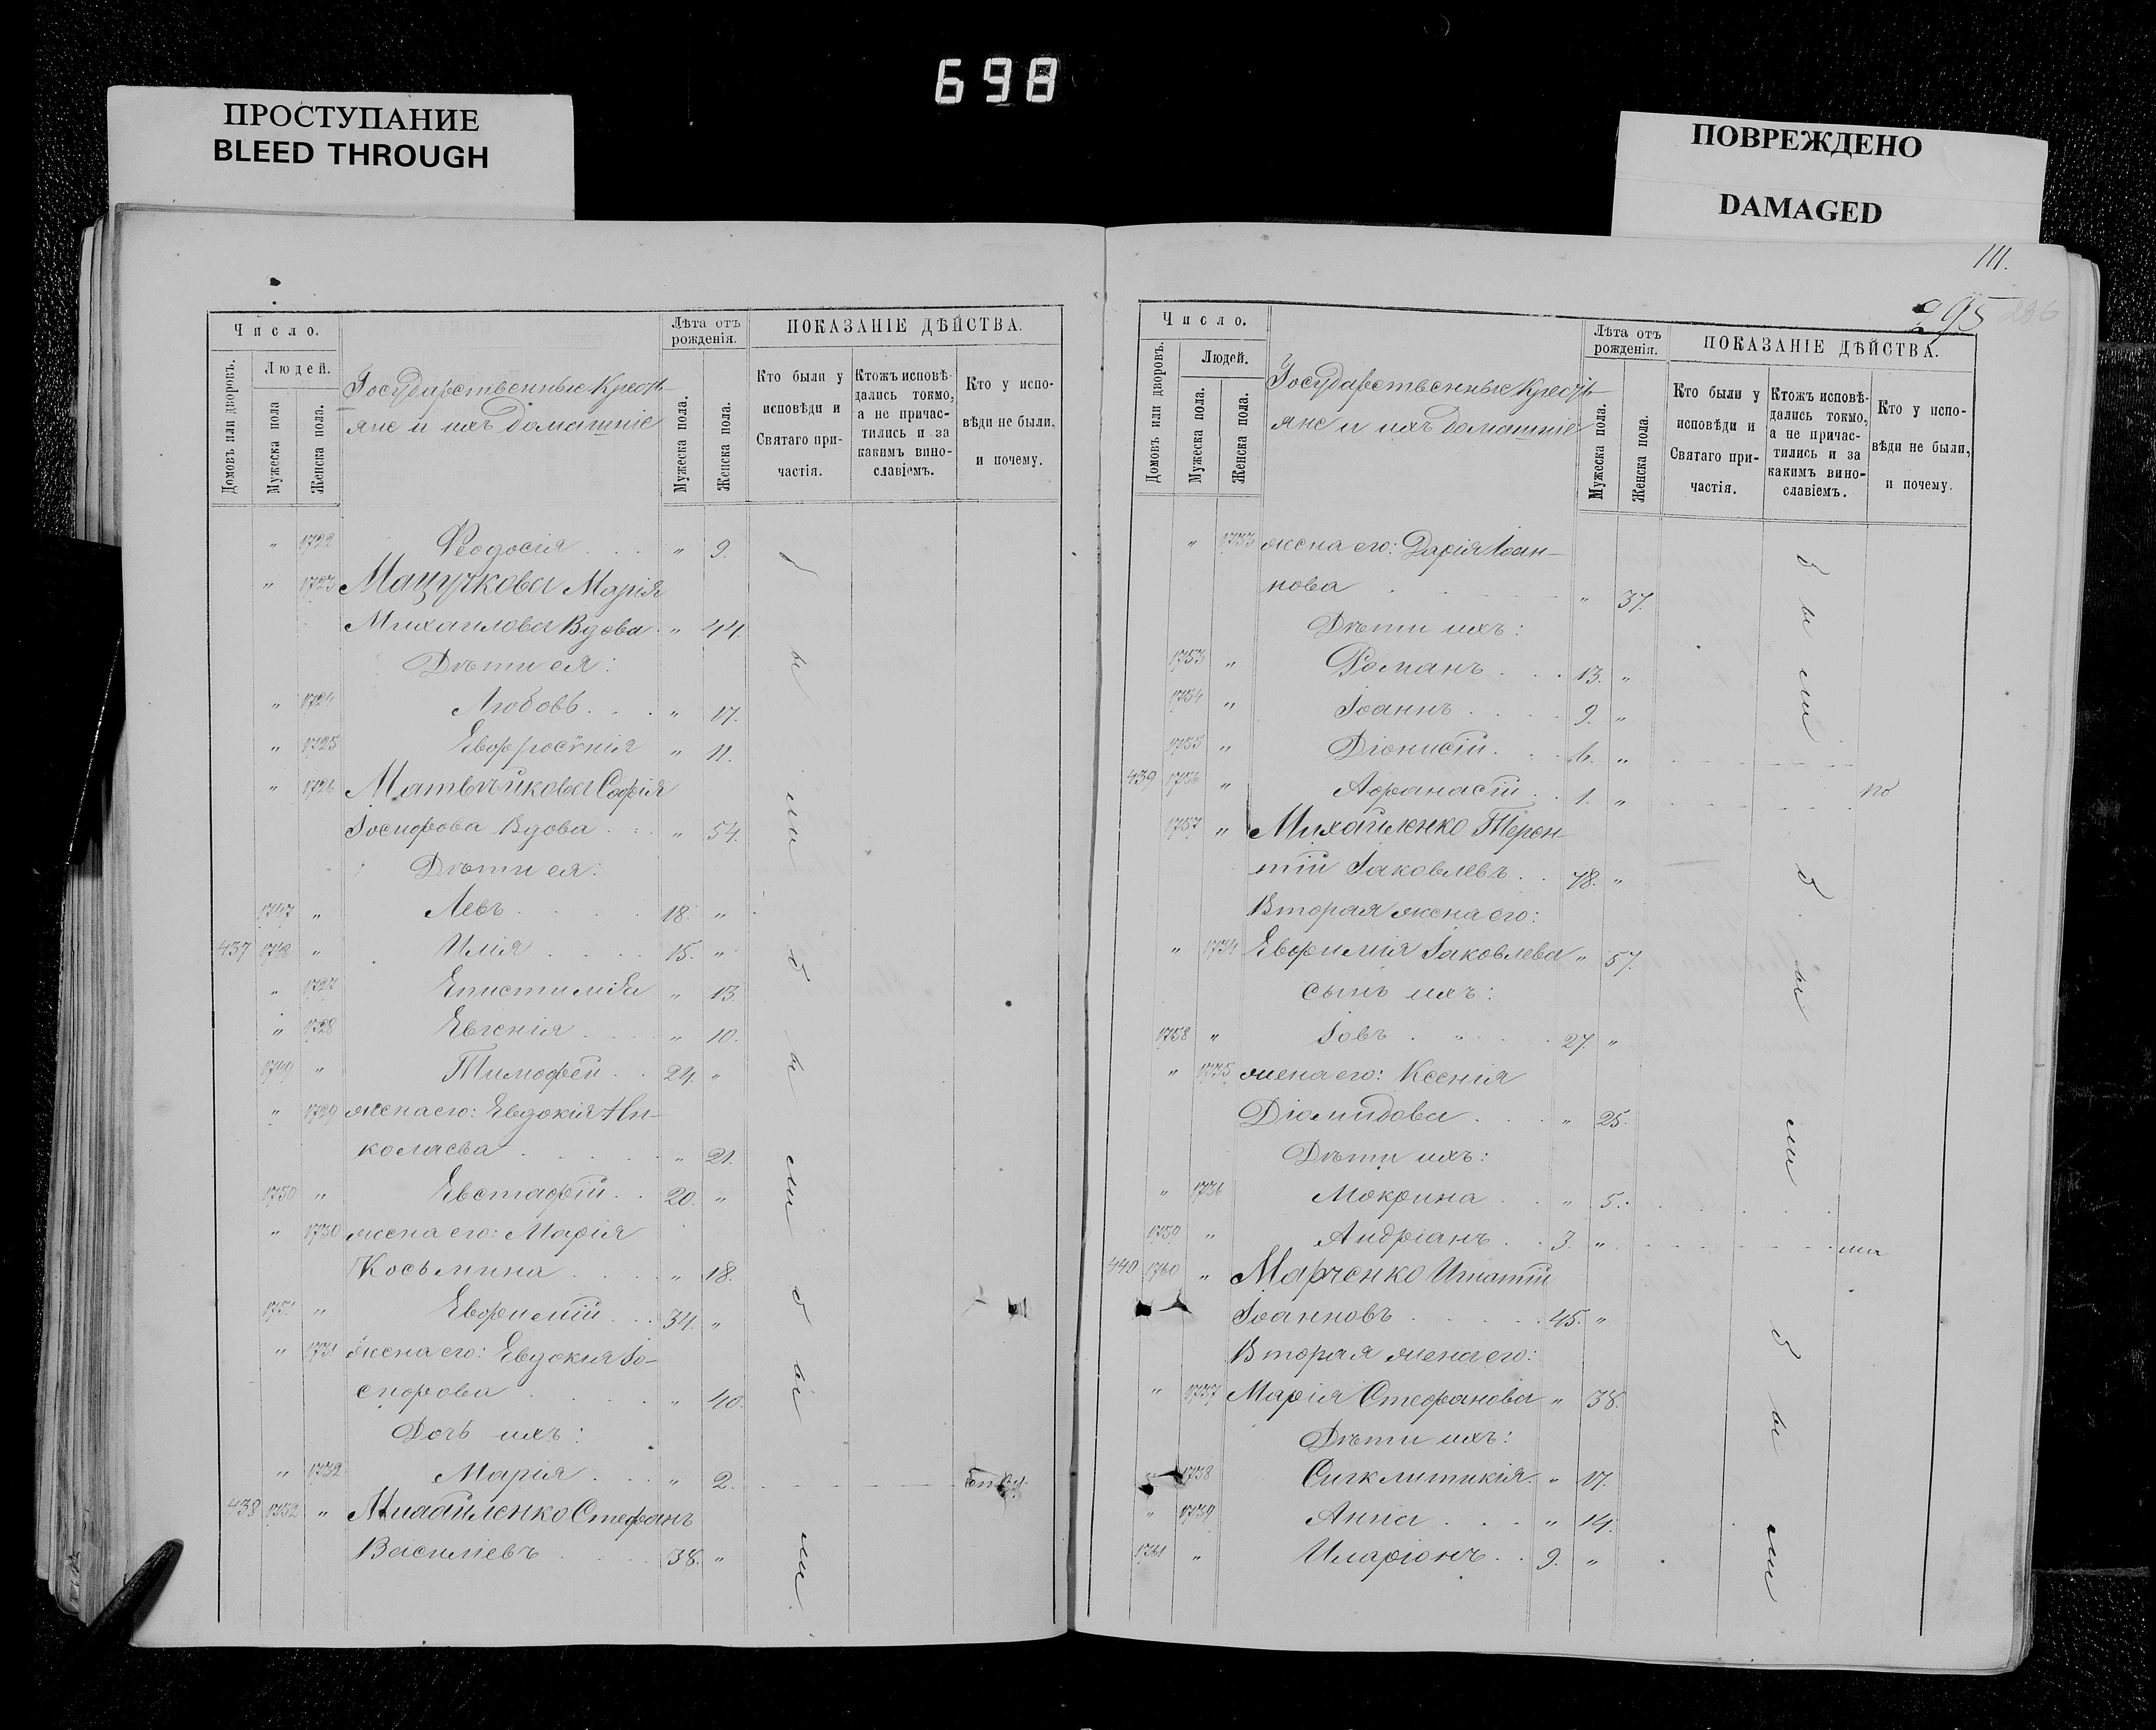 698
ПРОСТУПАНИЕ
BLEED THROUGH
ПОВРЕЖДЕНО
DAMAGED
Число.
Людей.
Домовъ или дворовъ.
Мужеска пола
Женска пола.
Государственные Кресть-
яне и ихъ домашніе
Лѣта отъ
рожденія.
Мужеска пола.
Женска пола.
ПОКАЗАНІЕ ДѢЙСТВА.
Кто были у
исповѣди и
Святаго при-
частія.
Ктожъ исповѣ-
дались токмо,
а не причас-
тились и за
какимъ вино-
славіемъ.
Кто у испо-
вѣди не были,
и почему.
" 1722 Ѳеодосія " 9.
" 1723 Марія
Михаилова Вдова " 44.
Дѣти ея:
" 1724 Любовь " 17.
" 1725 Евфросѵнія " 11.
" 1726 Матвѣйкова Софія
Іосифова Вдова " 54.
Дѣти ея:
1747 " Левъ 18. "
437 1748 " Илія 15. "
" 1727 Епистимія " 13.
" 1728 Евгенія " 10.
1749 " Тимофей 24. "
" 1729 жена его: Евдокія Ни-
колаева " 21.
1750 " Евстафій 20. "
" 1730 жена его: Марія
Косьмина " 18.
1751 " Евфимій 34. "
" 1731 жена его: Евдокія Іо-
сифова " 40.
Дочь ихъ:
" 1732 Марія " 2.
438 1752 " Михайленко Стефанъ
Василіевъ 38. "
были были были
111.
295
296
Число.
Людей.
Домовъ или дворовъ.
Мужеска пола.
Женска пола.
Государственные Кресть-
яне и ихъ домашніе
Лѣта отъ
рожденія.
Мужеска пола.
Женска пола.
ПОКАЗАНІЕ ДѢЙСТВА.
Кто были у
исповѣди и
Святаго при-
частія.
Ктожъ исповѣ-
дались токмо,
а не причас-
тились и за
какимъ вино-
славіемъ.
Кто у испо-
вѣди не были,
и почему.
" 1733 жена его: Дарія Іоан-
нова " 37.
Дѣти ихъ:
1753 " Романъ 13. "
1754 " Іоаннъ 9. "
1755 " Діонисій 6. "
439 1756 " Афанасій 1. " по
1757 " Михайленко Терен-
тій Іаковлевъ 48. "
Вторая жена его:
" 1734 Евфимія Іаковлева " 57.
Сынъ ихъ:
1758 " Іовъ 27. "
" 1735 жена его: Ксенія
Діомидова " 25.
Дѣти ихъ:
" 1736 Мокрина " 5.
1759 " Андріанъ 3. "
440 1760 " Марченко Игнатій
Іоанновъ 45. "
Вторая жена его:
" 1737 Марія Стефанова " 38.
Дѣти ихъ:
" 1738 Сигклитикія " 17.
" 1739 Анна " 14.
1761 " Иларіонъ 9. "
были были были